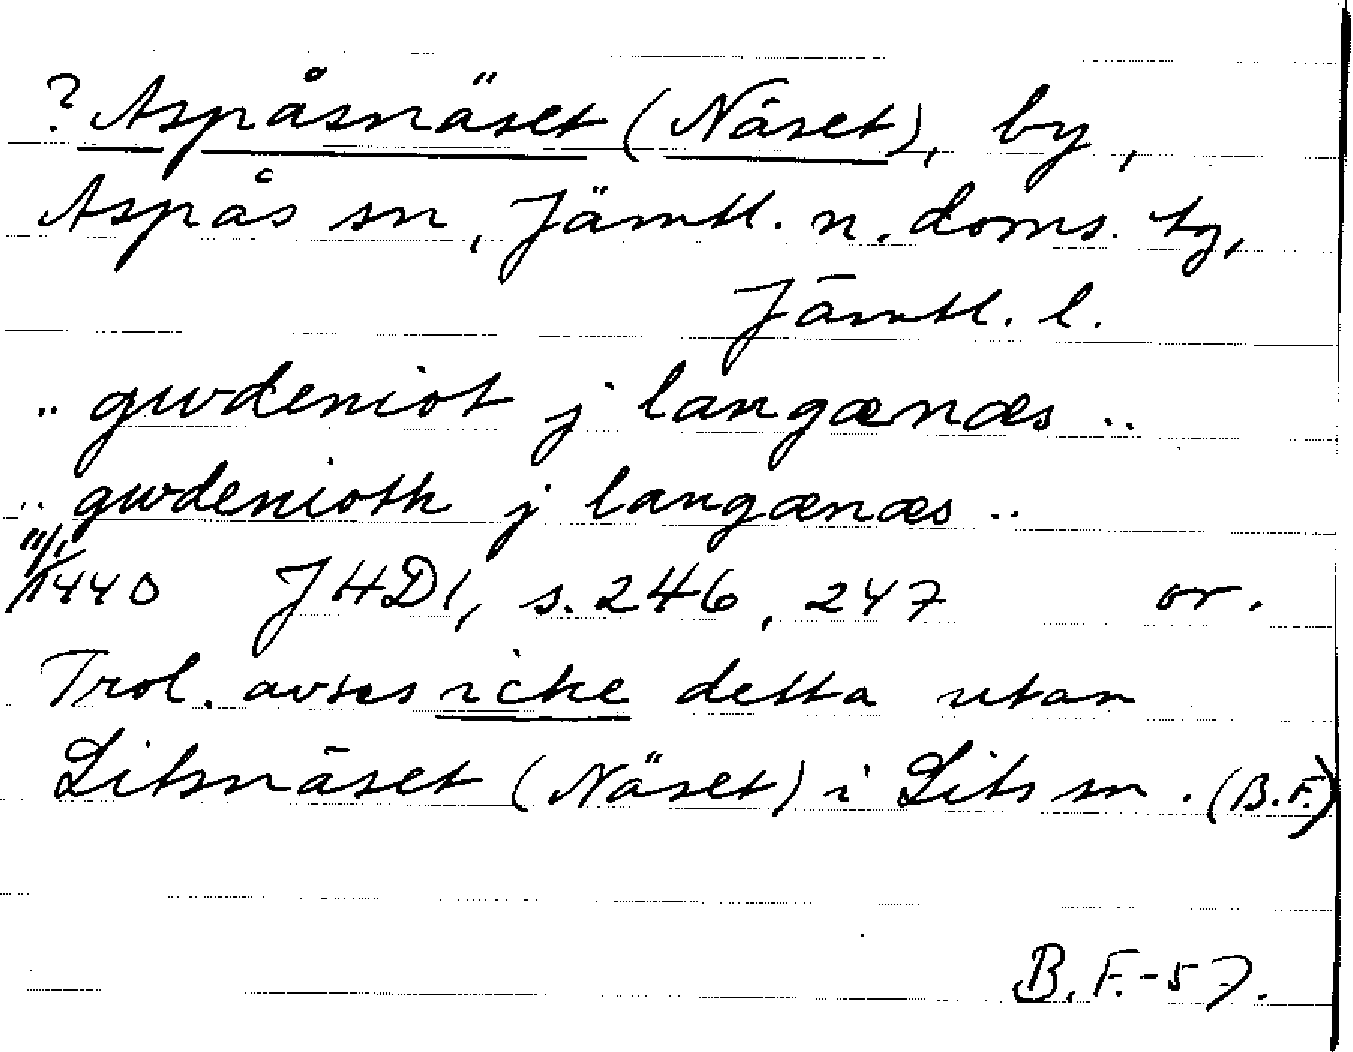 ? Aspåsnäset (Näset), by,
Aspås sn, Jämtl. n. doms. tg,
Jämtl. l.
.. gwdeniot j langænæs ..
.. gwdenioth j langænæs ..
11/1 1440 JHD1, s. 246, 247 or.
Trol. avses icke detta utan
Litsnäset (Näset) i Lits sn. (B.F.)
B.F.-57.